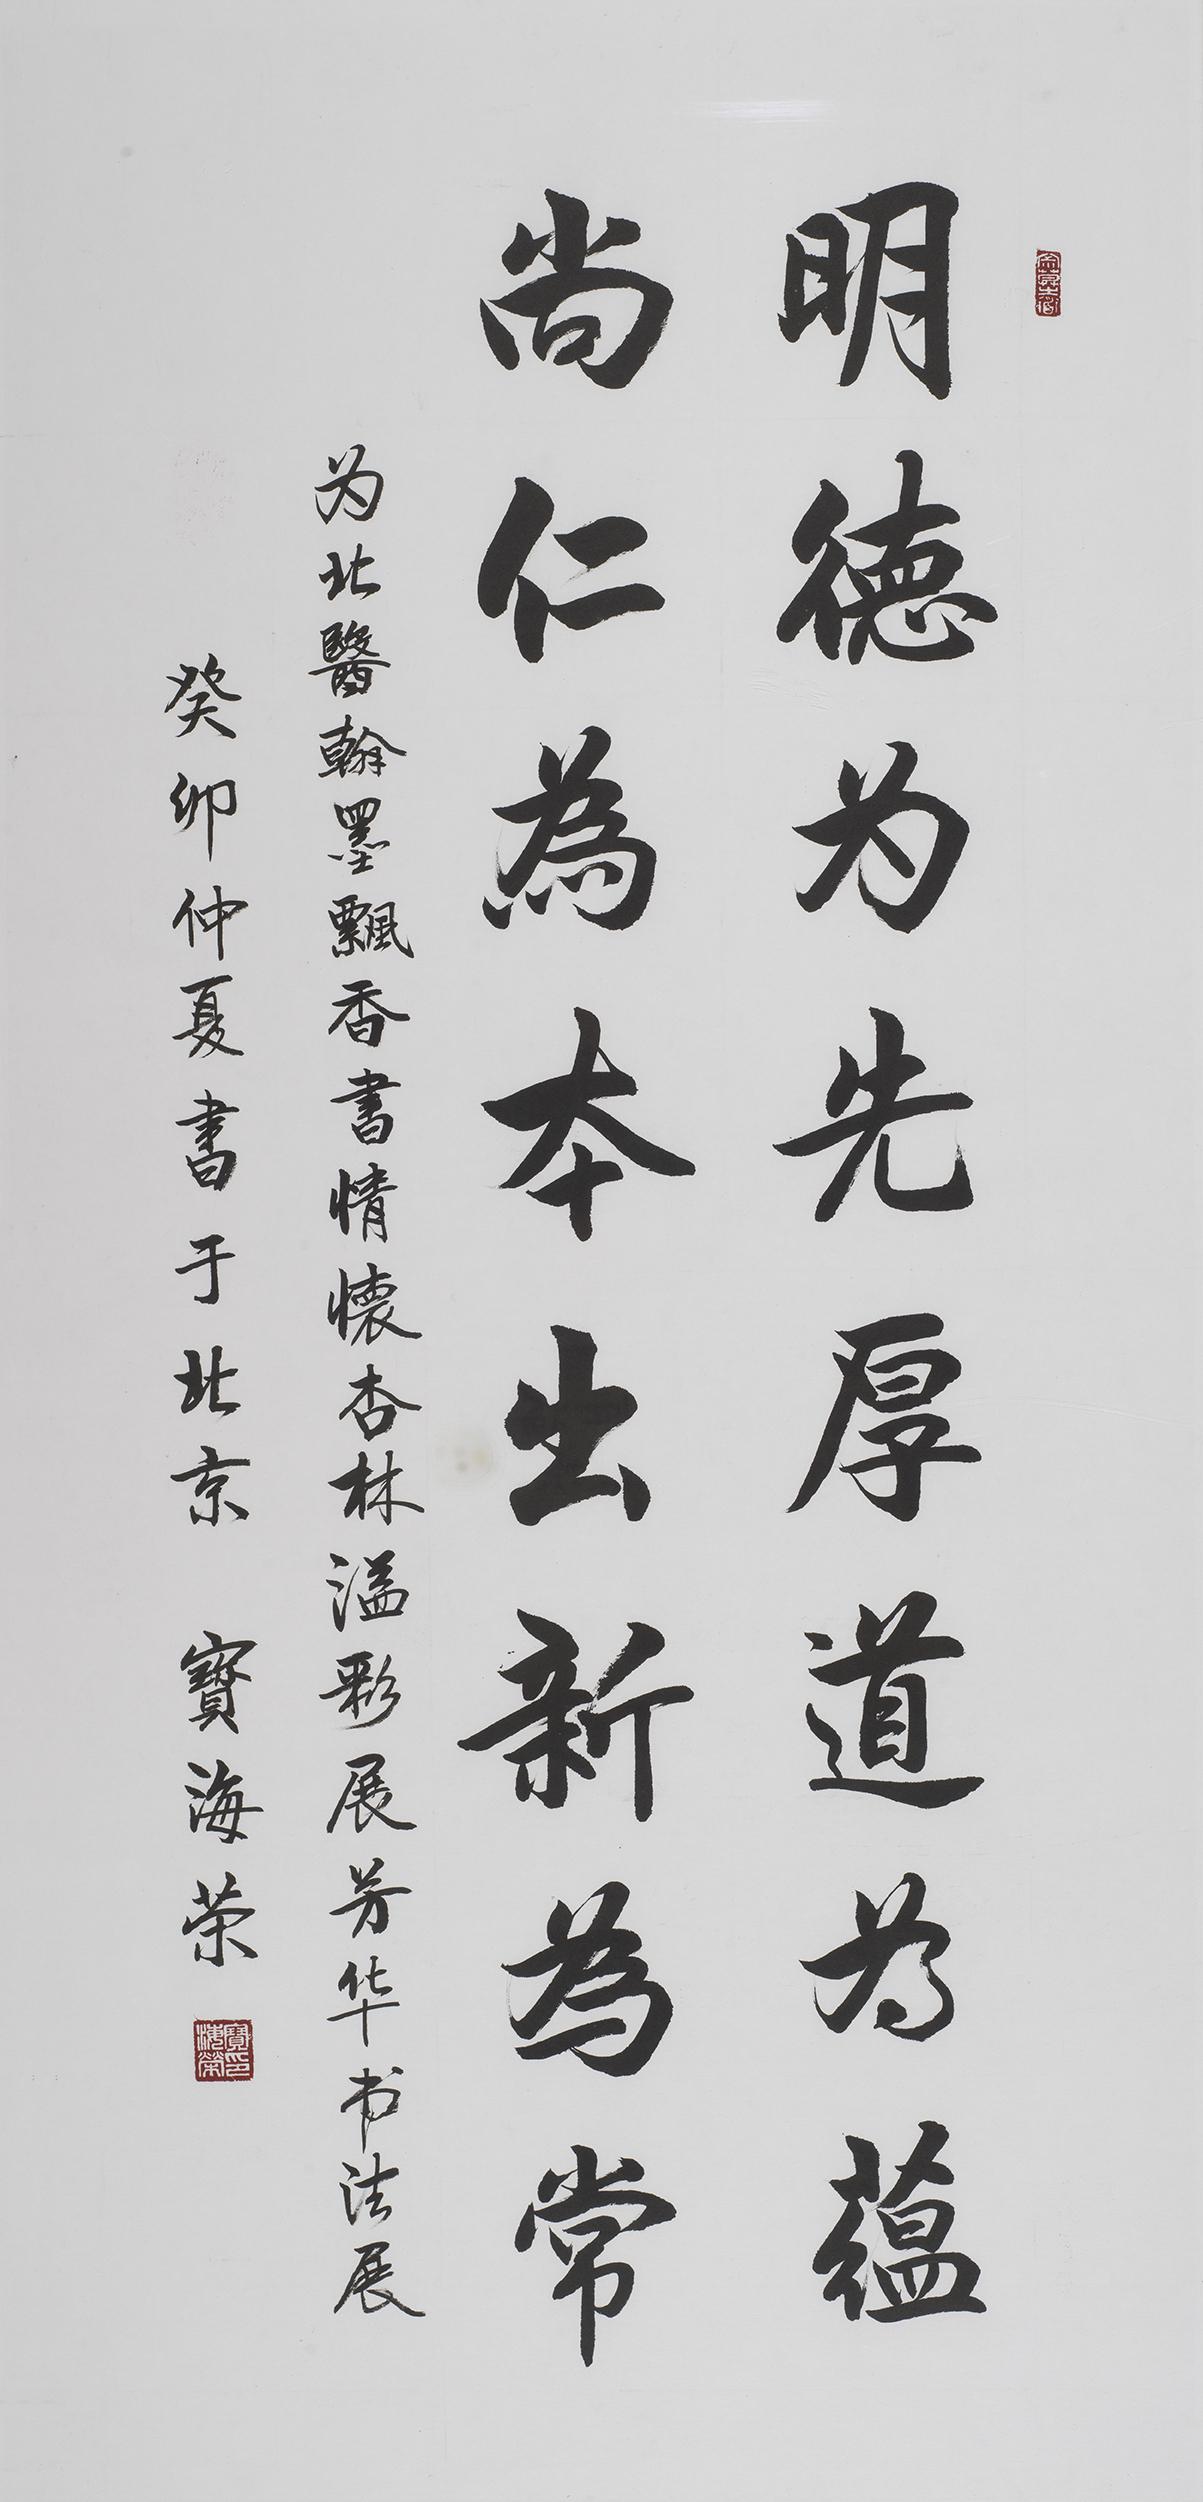 明德为先厚道为蕴
尚仁為本出新為常
为北醫翰墨飄香書情懷杏林溢彩展芳华书法展
癸卯仲夏書于北京 寶海荣
寶海榮印